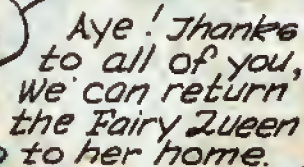 Aye! Thanks
to all of you,
we can return
the Fairy Queen
to her home.